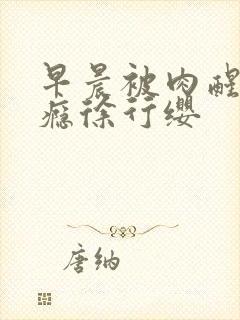 早晨被肉醒
瘾徐行缨
唐纳